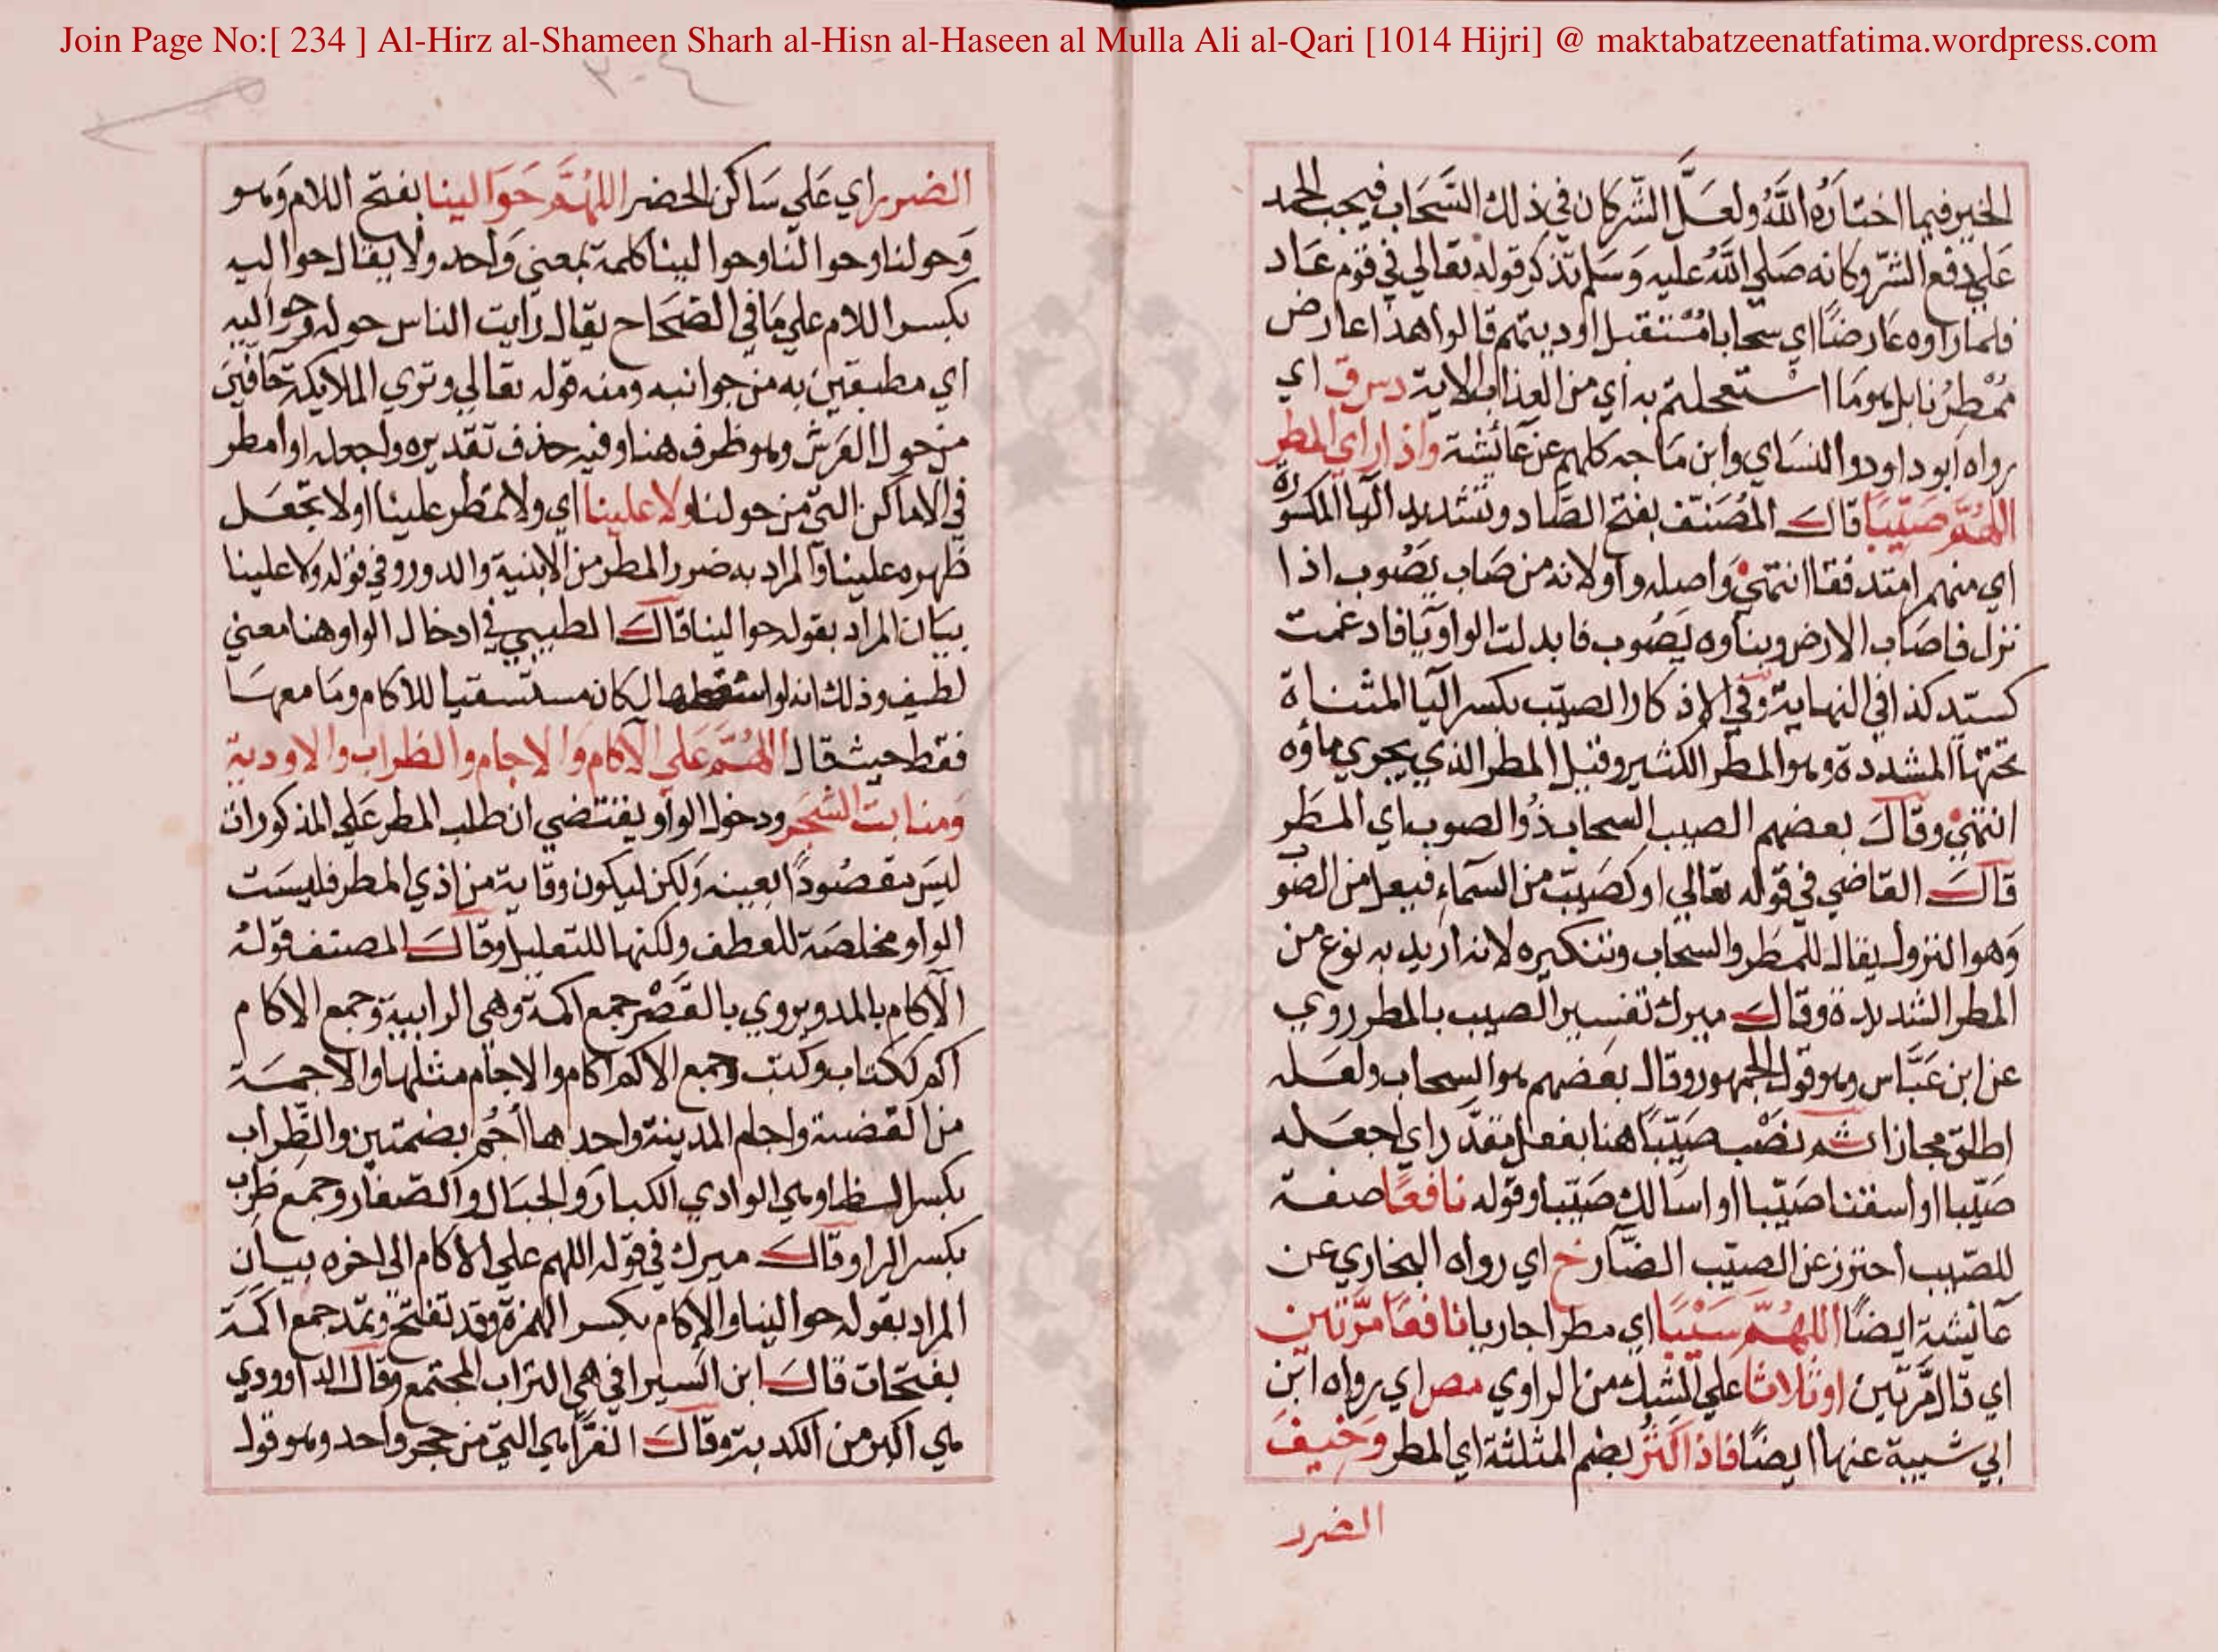 Join Page No:[ 234 ] Al-Hirz al-Shameen Sharh al-Hisn al-Haseen al Mulla Ali al-Qari [1014 Hijri] @ maktabatzeenatfatima.wordpress.com
الخير فيما اختاره الله ولعل الشر كان في ذلك السحاب فيجب الحمد
علي دفع الشر وكانه صلي الله عليه وسلم تذكر قوله تعالي في قوم عاد
فلما راوه عارضا اي سحابا مستقبل اوديتهم قالوا هذا عارض
ممطرنا بل هو ما استعجلتم به اي من العذاب الاية دس ق اي
رواه ابو داود والنساي وابن ماجه كلهم عن عائشة واذا راي المطر
اللهم صيبا قال المصنف بفتح الصاد وتشديد اليا المكسورة
اي منهم انتهي واصله واو لانه من صاب يصوب اذا
نزل فاصاب الارض وبناوه يصوب فابدلت الواو يا فادغمت
كسيد كذا في النهاية وفي الاذكار الصيب بكسر اليا المثناة
تحتها المشددة وهو المطر الكثير وقيل المطر الذي يجري ماؤه
انتهي وقال بعضهم الصيب السحاب ذو الصوب اي المطر
قال القاضي في قوله تعالي او كصيب من السماء فيعل من الصوب
وهو النزول يقال للمطر والسحاب وتنكيره لانه اريد به نوع من
المطر الشديدة وقال ميرك تفسير الصيب بالمطر روي
عن ابن عباس وهو قول الجمهور وقال بعضهم هو السحاب ولعله
اطلق مجازا ثم نصب صيبا هنا بفعل مقدر اي اجعله
صيبا او اسقنا صيبا او اسالك صيبا وقوله نافعا صفة
للصيب احترز عن الصيب الضار خ اي رواه البخاري عن
عائشة ايضا اللهم سيبا اي مطرا جاريا نافعا مرتين
اي قال مرتين او ثلاثا علي الشك من الراوي مص اي رواه ابن
ابي شيبة عنها ايضا فاذا كثر بضم المثلثة اي المطر وخيف
الضرر
الضرر اي علي ساكن الحضر اللهم حوالينا بفتح اللام وهو
وحولنا وحوالنا وحوالينا كلمة بمعني واحد ولا يقال حواليه
بكسر اللام علي ما في الصحاح يقال رايت الناس حوله وحواليه
اي مطبقين به من جوانبه ومنه قوله تعالي وتري الملايكة حافين
من حول العرش وهو ظرف هنا وفيه حذف تقديره واجعله او امطر
في الاماكن التي من حولنا ولا علينا اي ولا تمطر علينا او لا تجعل
ظهره علينا والمراد به ضرر المطر من الابنية والدور وفي قوله ولا علينا
بيان المراد بقوله حوالينا قال الطيبي في ادخال الواو هنا معني
لطيف وذلك انه لو اسقطها لكان مستسقيا للاكام وما معها
فقط حيث قال اللهم علي الاكام والاجام والظراب والاودية
ومنابت الشجر ودخول الواو يقتضي ان طلب المطر علي المذكورات
ليس مقصودا لعينه ولكن ليكون وقاية من اذي المطر فليست
الواو مخلصة للعطف ولكنها للتعليل وقال المصنف قوله
الآكام بالمد ويروي بالقصر جمع اكمة وهي الرابية وجمع الاكام
اكم ككتاب وكتب وجمع الاكم اكام والاجام مثلها والاجمة
من القضبة واجام المدينة واحدها أجم بضمتين والظراب
بكسر الظا وهي الوادي الكبار والجبال والصغار وجمع ظرب
بكسر الرا وقال ميرك في قوله اللهم علي الاكام الي اخره بيان
المراد بقوله حوالينا والاكام بكسر الهمزة وقد تفتح وتمد جمع اكمة
بفتحات قال ابن السيرافي هي التراب المجتمع وقال الداوودي
هي اكبر من الكدية وقال الفرا هي التي من حجر واحد وهو قول